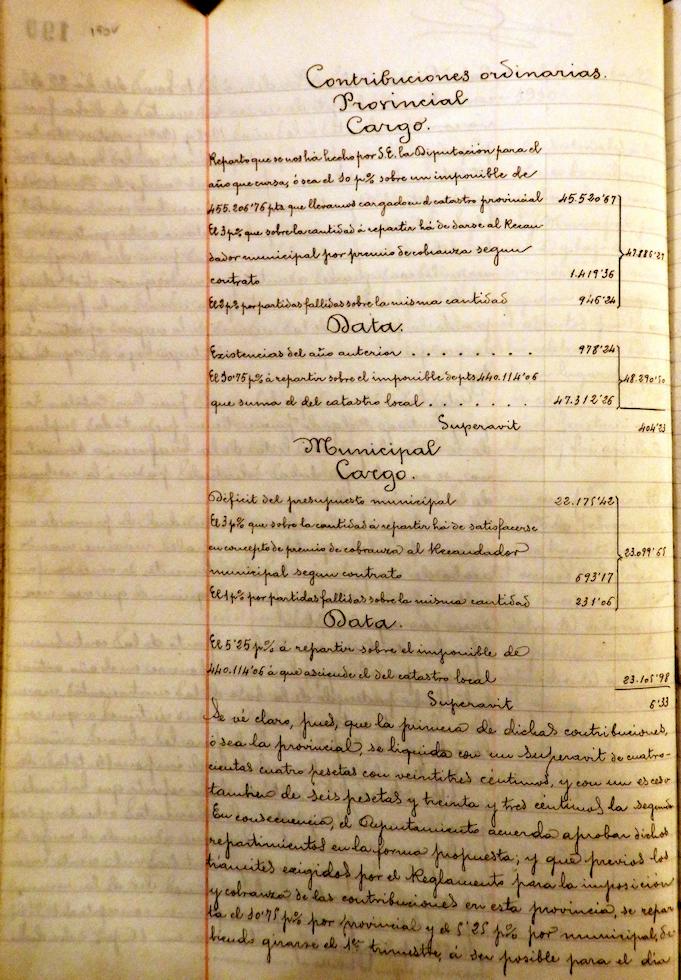 190
Contribuciones ordinarias.
Provincial
Cargo.
Reparto que se nos há hecho por S.E. la Diputación para el
año que cursa, ó sea el 10 p% sobre un imponible de
455.206'76 pts que llevamos cargado en el catastro provincial 45.520'67
El 3 p% que sobre la cantidad á repartir há de darse al Recau-
dador municipal por premio de cobranza segun 47.886'27
contrato 1.419'36
El 2 p% por partidas fallidas sobre la misma cantidad 946'24
Data.
Existencias del año anterior . . . . . . . 978'24
El 10'75 p% á repartir sobre el imponible de pts 440.114'06 48.290'50
que suma el del catastro local . . . . . . 47.312'26
Superavit 404'23
Municipal
Cargo.
Déficit del presupuesto municipal 22.175'42
El 3 p% que sobre la cantidad á repartir há de satisfacerse
en concepto de premio de cobranza al Recaudador 23.099'65
municipal segun contrato 693'17
El 1 p% por partidas fallidas sobre la misma cantidad 231'06
Data.
El 5'25 p% á repartir sobre el imponible de
440.114'06 á que asciende el del catastro local 23.105'98
Superavit 6'33
Se vé claro, pues, que la primera de dichas contribuciones,
ó sea la provincial, se liquida con un superavit de cuatro-
cientas cuatro pesetas con veintitres céntimos, y con un exceso
tambien de seis pesetas y treinta y tres céntimos la segunda
En consecuencia, el Ayuntamiento acuerda aprobar dichos
repartimientos en la forma propuesta; y que previos los
trámites exigidos por el Reglamento para la imposición
y cobranza de las contribuciones en esta provincia, se repar
ta el 10'75 p% por provincial y el 5'25 p% por municipal, de-
biendo girarse el 1er trimestre, á ser posible para el dia